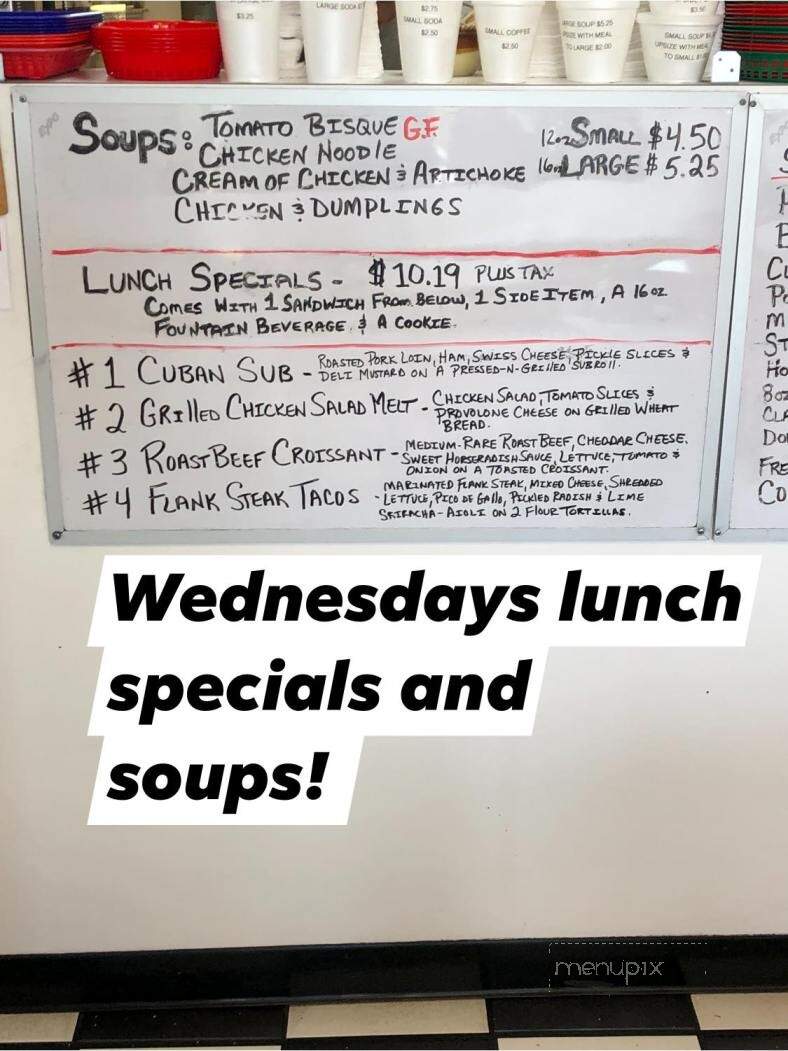 $3.25
LARGE SODA
$2.75
SMALL SODA
$2.50
SMALL COFFEE
$2.50
LARGE SOUP $5.25
UPSIZE WITH MEAL
TO LARGE $2.00
SMALL SOUP
UPSIZE WITH MEAL
TO SMALL
EXPO
SOUPS: TOMATO BISQUE G.F.
CHICKEN NOODLE
CREAM OF CHICKEN & ARTICHOKE
CHICKEN & DUMPLINGS
12oz SMALL $4.50
16oz LARGE $5.25
LUNCH SPECIALS - $10.19 PLUS TAX
COMES WITH 1 SANDWICH FROM BELOW, 1 SIDE ITEM, A 16 OZ
FOUNTAIN BEVERAGE & A COOKIE.
#1 CUBAN SUB - ROASTED PORK LOIN, HAM, SWISS CHEESE, PICKLE SLICES &
DELI MUSTARD ON A PRESSED-N-GRILLED SUBROLL.
#2 GRILLED CHICKEN SALAD MELT - CHICKEN SALAD, TOMATO SLICES &
PROVOLONE CHEESE ON GRILLED WHEAT
BREAD.
#3 ROAST BEEF CROISSANT - MEDIUM-RARE ROAST BEEF, CHEDDAR CHEESE,
SWEET HORSERADISH SAUCE, LETTUCE, TOMATO &
ONION ON A TOASTED CROISSANT.
#4 FLANK STEAK TACOS - MARINATED FLANK STEAK, MIXED CHEESE, SHREDDED
LETTUCE, PICO DE GALLO, PICKLED RADISH & LIME
SRIRACHA-AIOLI ON 2 FLOUR TORTILLAS.
Wednesdays lunch
specials and
soups!
menupix